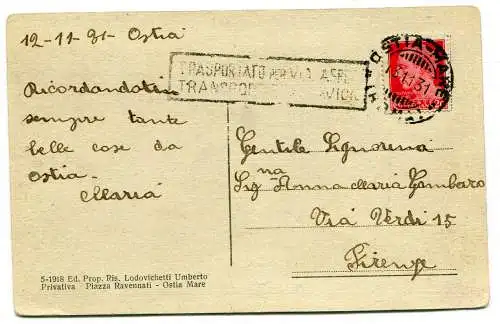 12-11-31- Ostia
TRASPORTATO PER VIA AEREA
TRANSPOR AVION
OSTIA-MARE
11.31
Ricordandoti
sempre tante
belle cose da
Ostia-
Maria
Gentile Signorina
na
Sig Anna Maria Gambaro
Via Verdi 15
Firenze
5-1918 Ed. Prop. Ris. Lodovichetti Umberto
Privativa Piazza Ravennati - Ostia Mare